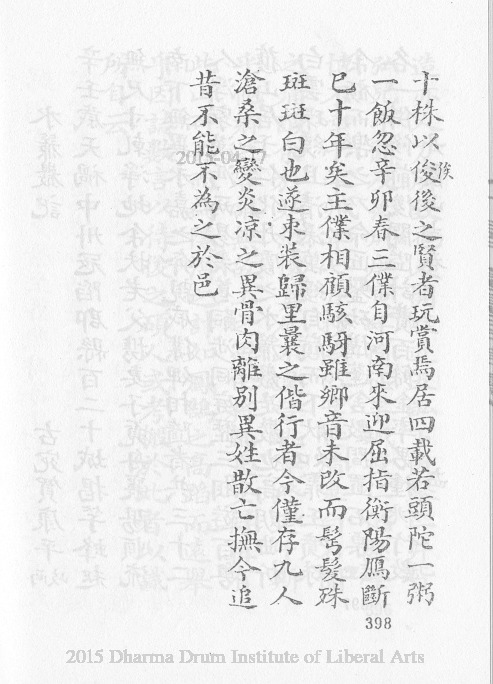 十株以俊後之賢者玩賞焉居四載若頭陀一粥
俟
一飯忽辛卯春三僕自河南來迎屈指衡陽鴈斷
已十年矣主僕相顧駭駴雖鄉音未改而髩髮殊
斑斑白也遂束装歸里曩之偕行者今僅存九人
滄桑之變炎凉之異骨肉離別異姓散亡撫今追
昔不能不為之於邑
398
2015 Dharma Drum Institute of Liberal Arts